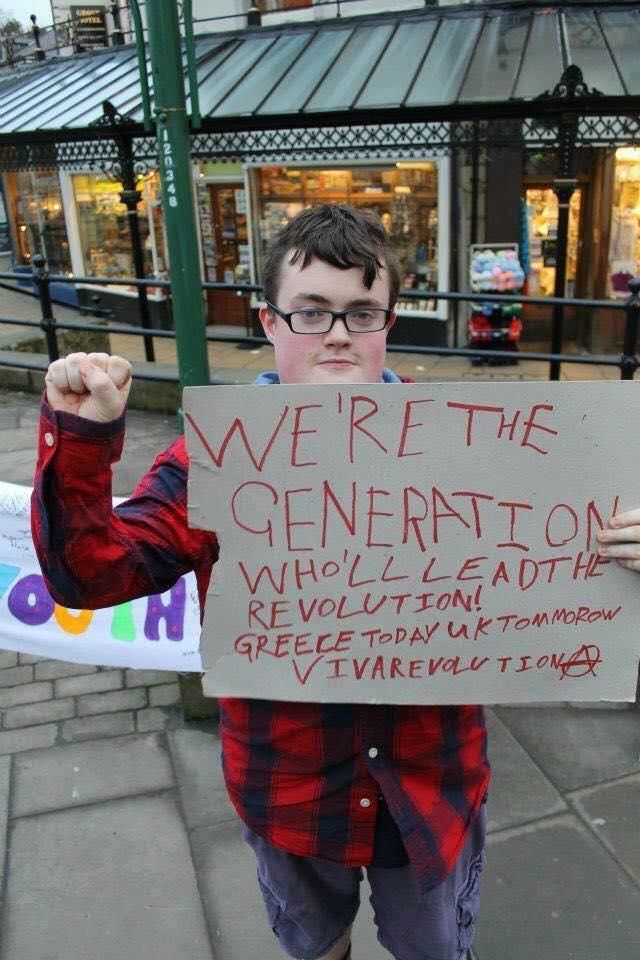 HOTEL
120348
WE'RE THE
GENERATION
WHO'LL LEAD THE
REVOLUTION!
GREECE TODAY UK TOMMOROW
VIVA REVOLUTION
OUTH